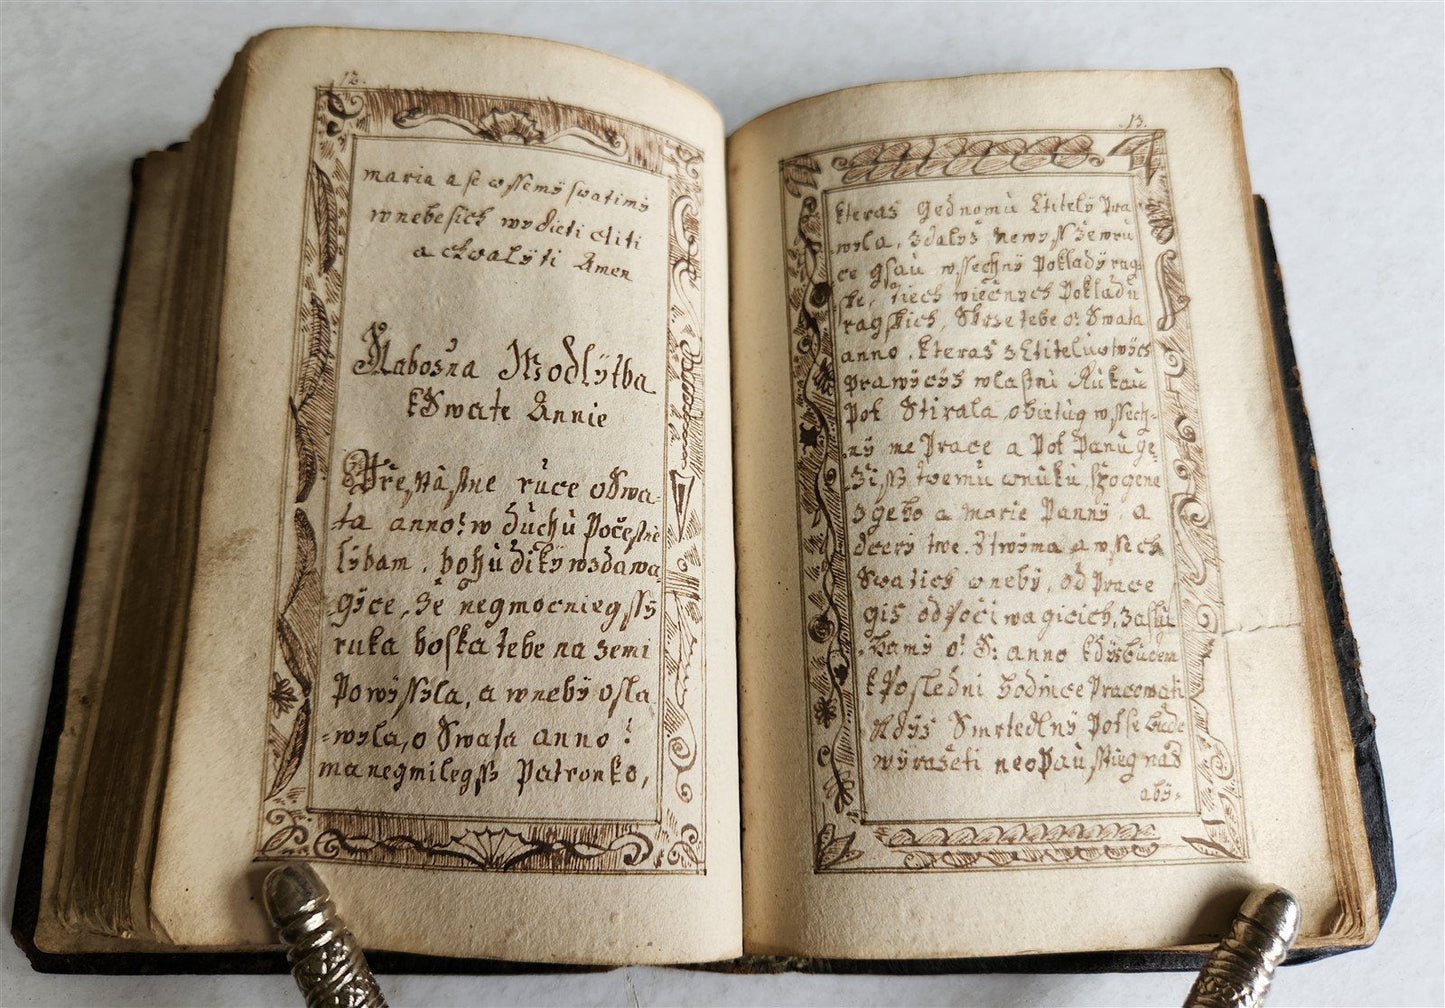 12.
maria a se wssemÿ swatimÿ
w nebesich widieti ctiti
a chwalÿti Amen
Nabožna Modlÿtba
k Swate Annie
Přesstiastne ruce o Swa-
ta anno! w duchu Počestně
lÿbam, bohu dikÿ wzdawa-
gÿce, že negmocniegssÿ
ruka boska tebe na zemi
Powÿssyla, a w nebÿ osla
-wyla, o Swata anno!
ma negmilegssÿ Patronko,
13.
kteraž Gednomu Ctitelÿ Pra-
wyla, ždalyž newyss že w ru
ce gsau wssechnÿ Pokladÿ rag-
ske, tiech wiečnych Pokladu
ragskich, Skrze tebe o! Swata
anno, kteraž z Ctitelu twých
prawÿcyž wlastni Rukau
Pot Stirala, obietug wssech-
nÿ me Prace a Pot Panu Ge-
žissi twemu wnuku spogene
z geho a Marie Pannÿ, a
dcerÿ twe. Stwÿma a wssech
Swatich w nebÿ, od Prace
giž odpočiwagicich, žaslu
-hamÿ o! S: anno kdÿž budem
k Poslednï hodince Pracowati
Kdÿž Smrtedlnÿ Pot se bude
wÿražeti neopaustieg naš
abÿ-